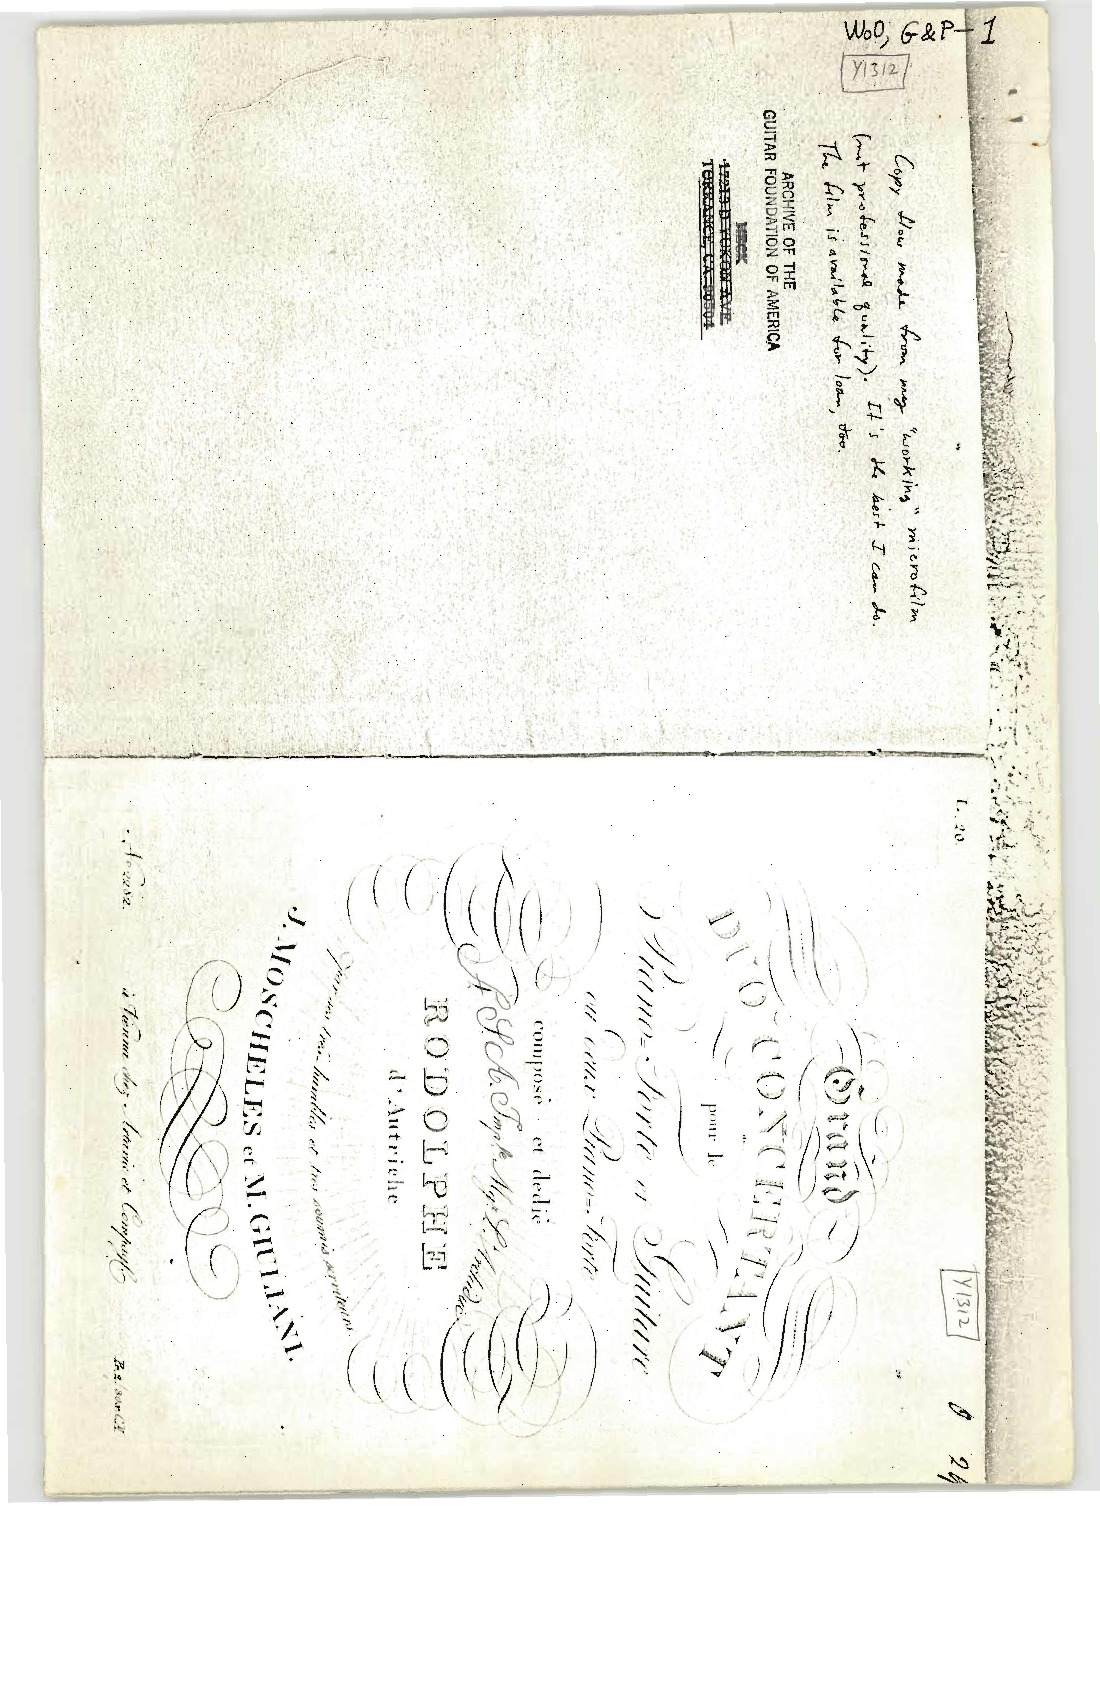 WoO, G&P-1
Y1312
Copy flow made from my "working" microfilm
(not professional quality). It's the best I can do.
The film is available for loan, too.
ARCHIVE OF THE
GUITAR FOUNDATION OF AMERICA
TORRANCE, CA. 90504
L. 20.
Y1312
Grand
DUO CONCERTANT
pour le
Piano=Forte et Guitare
ou deux Piano=Forte
composé et dedié
A S. A. Imp.le Mgr. L'Archiduc
RODOLPHE
d'Autriche
par ses très-humbles et très soumis serviteurs
J. MOSCHELES et M. GIULIANI.
à Vienne chez Artaria et Compag.